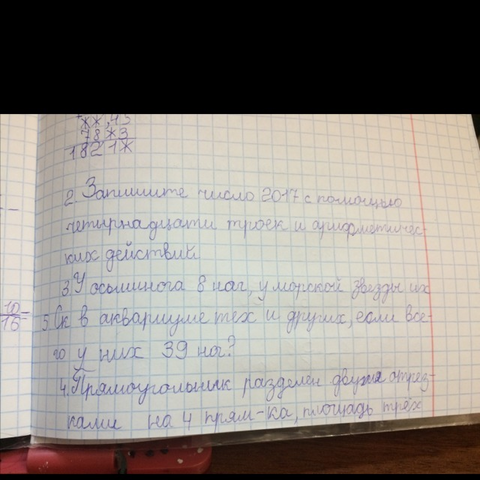 **,43
78*3
1821*
2 Запишите число 2017 с помощью
четырнадцати троек и арифметичес-
ких действий.
3. У осьминога 8 ног, у морской звезды их
10
16
5. Ск в аквариуме тех и других, если все-
го у них 39 ног?
4. Прямоугольник разделен двумя отрез-
ками на 4 прям-ка, площадь трёх